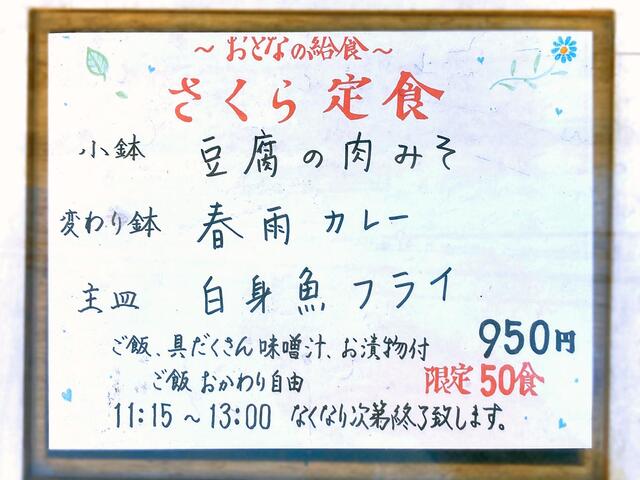 ～おとなの給食～
さくら定食
小鉢 豆腐の肉みそ
変わり鉢 春雨カレー
主皿 白身魚フライ
ご飯、具だくさん味噌汁、お漬物付 950円
ご飯おかわり自由 限定50食
11:15～13:00 なくなり次第終了致します。